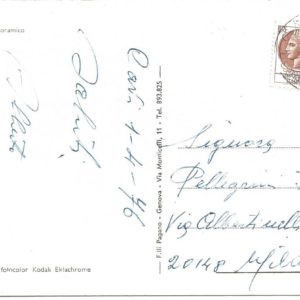 oramico
Cari 1-4-76
Saluti
F.lli Pagano - Genova - Via Monticelli, 11 - Tel. 893.825
fotocolor Kodak Ektachrome
Signora
Pellegrini
Via Albertinelli
20148 Mila